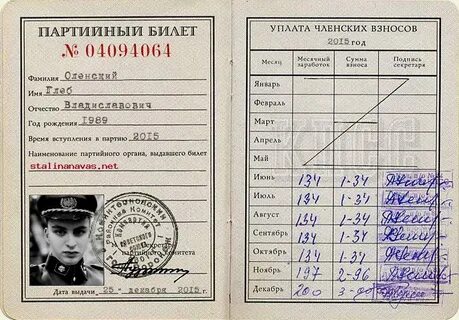 ПАРТИЙНЫЙ БИЛЕТ
№ 04094064
Фамилия Оленский
Имя Глеб
Отчество Владиславович
Год рождения 1989
Время вступления в партию 2015
Наименование партийного органа, выдавшего билет
stalinanavas.net
Дата выдачи 25 декабря 2015 г.
УПЛАТА ЧЛЕНСКИХ ВЗНОСОВ
2015 год
Месяц Месячный заработок Сумма взноса Подпись секретаря
Январь
Февраль
Март
Апрель
Май
Июнь 134 1-34
Июль 134 1-34
Август 134 1-34
Сентябрь 134 1-34
Октябрь 134 1-34
Ноябрь 197 2-96
Декабрь 200